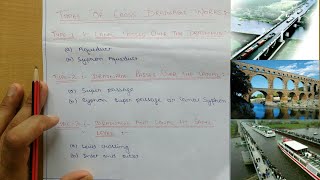 TYPES OF CROSS DRAINAGE WORKS
TYPE-1 :- CANAL PASSES OVER THE DRAINAGE
(a) Aqueduct
(b) Syphon Aqueduct
TYPE-2 :- DRAINAGE PASSES OVER THE CANAL
(a) Super passage
(b) Syphon super passage or Canal Syphon
TYPE-3 :- DRAINAGE AND CANAL AT SAME
LEVEL :-
(a) Level crossing
(b) Inlet and outlet